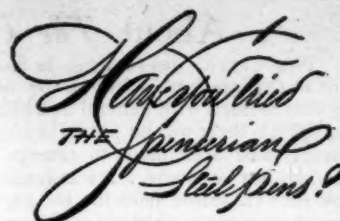 Have you tried
THE Spencerian
Steel Pens?